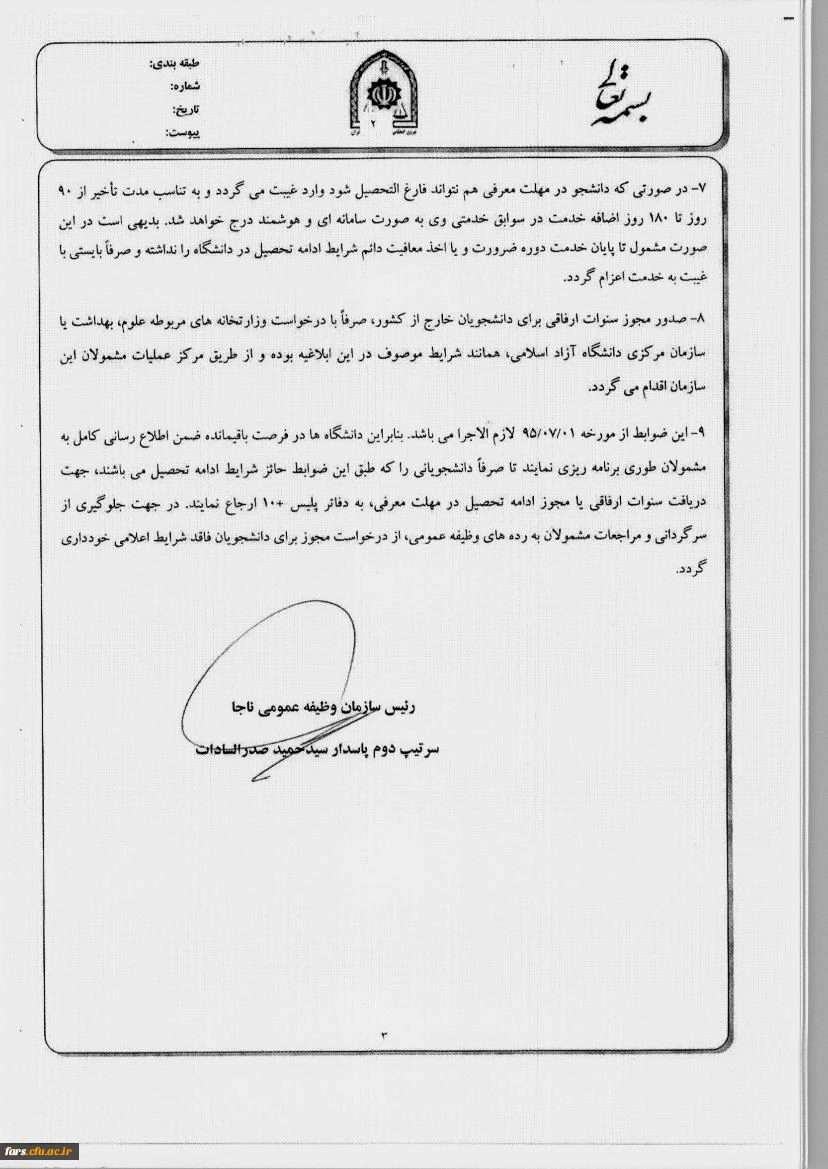 بسمه تعالی
طبقه بندی:
شماره:
تاریخ:
پیوست:
نیروی انتظامی
ایران
۷- در صورتی که دانشجو در مهلت معرفی هم نتواند فارغ التحصیل شود وارد غیبت می گردد و به تناسب مدت تأخیر از ۹۰
روز تا ۱۸۰ روز اضافه خدمت در سوابق خدمتی وی به صورت سامانه ای و هوشمند درج خواهد شد. بدیهی است در این
صورت مشمول تا پایان خدمت دوره ضرورت و یا اخذ معافیت دائم شرایط ادامه تحصیل در دانشگاه را نداشته و صرفاً بایستی با
غیبت به خدمت اعزام گردد.
۸- صدور مجوز سنوات ارفاقی برای دانشجویان خارج از کشور، صرفاً با درخواست وزارتخانه های مربوطه علوم، بهداشت یا
سازمان مرکزی دانشگاه آزاد اسلامی، همانند شرایط موصوف در این ابلاغیه بوده و از طریق مرکز عملیات مشمولان این
سازمان اقدام می گردد.
۹- این ضوابط از مورخه ۹۵/۰۷/۰۱ لازم الاجرا می باشد. بنابراین دانشگاه ها در فرصت باقیمانده ضمن اطلاع رسانی کامل به
مشمولان طوری برنامه ریزی نمایند تا صرفاً دانشجویانی را که طبق این ضوابط حائز شرایط ادامه تحصیل می باشند، جهت
دریافت سنوات ارفاقی یا مجوز ادامه تحصیل در مهلت معرفی، به دفاتر پلیس +۱۰ ارجاع نمایند. در جهت جلوگیری از
سرگردانی و مراجعات مشمولان به رده های وظیفه عمومی، از درخواست مجوز برای دانشجویان فاقد شرایط اعلامی خودداری
گردد.
رئیس سازمان وظیفه عمومی ناجا
سرتیپ دوم پاسدار سیدحمید صدرالسادات
۳
fars.cfu.ac.ir